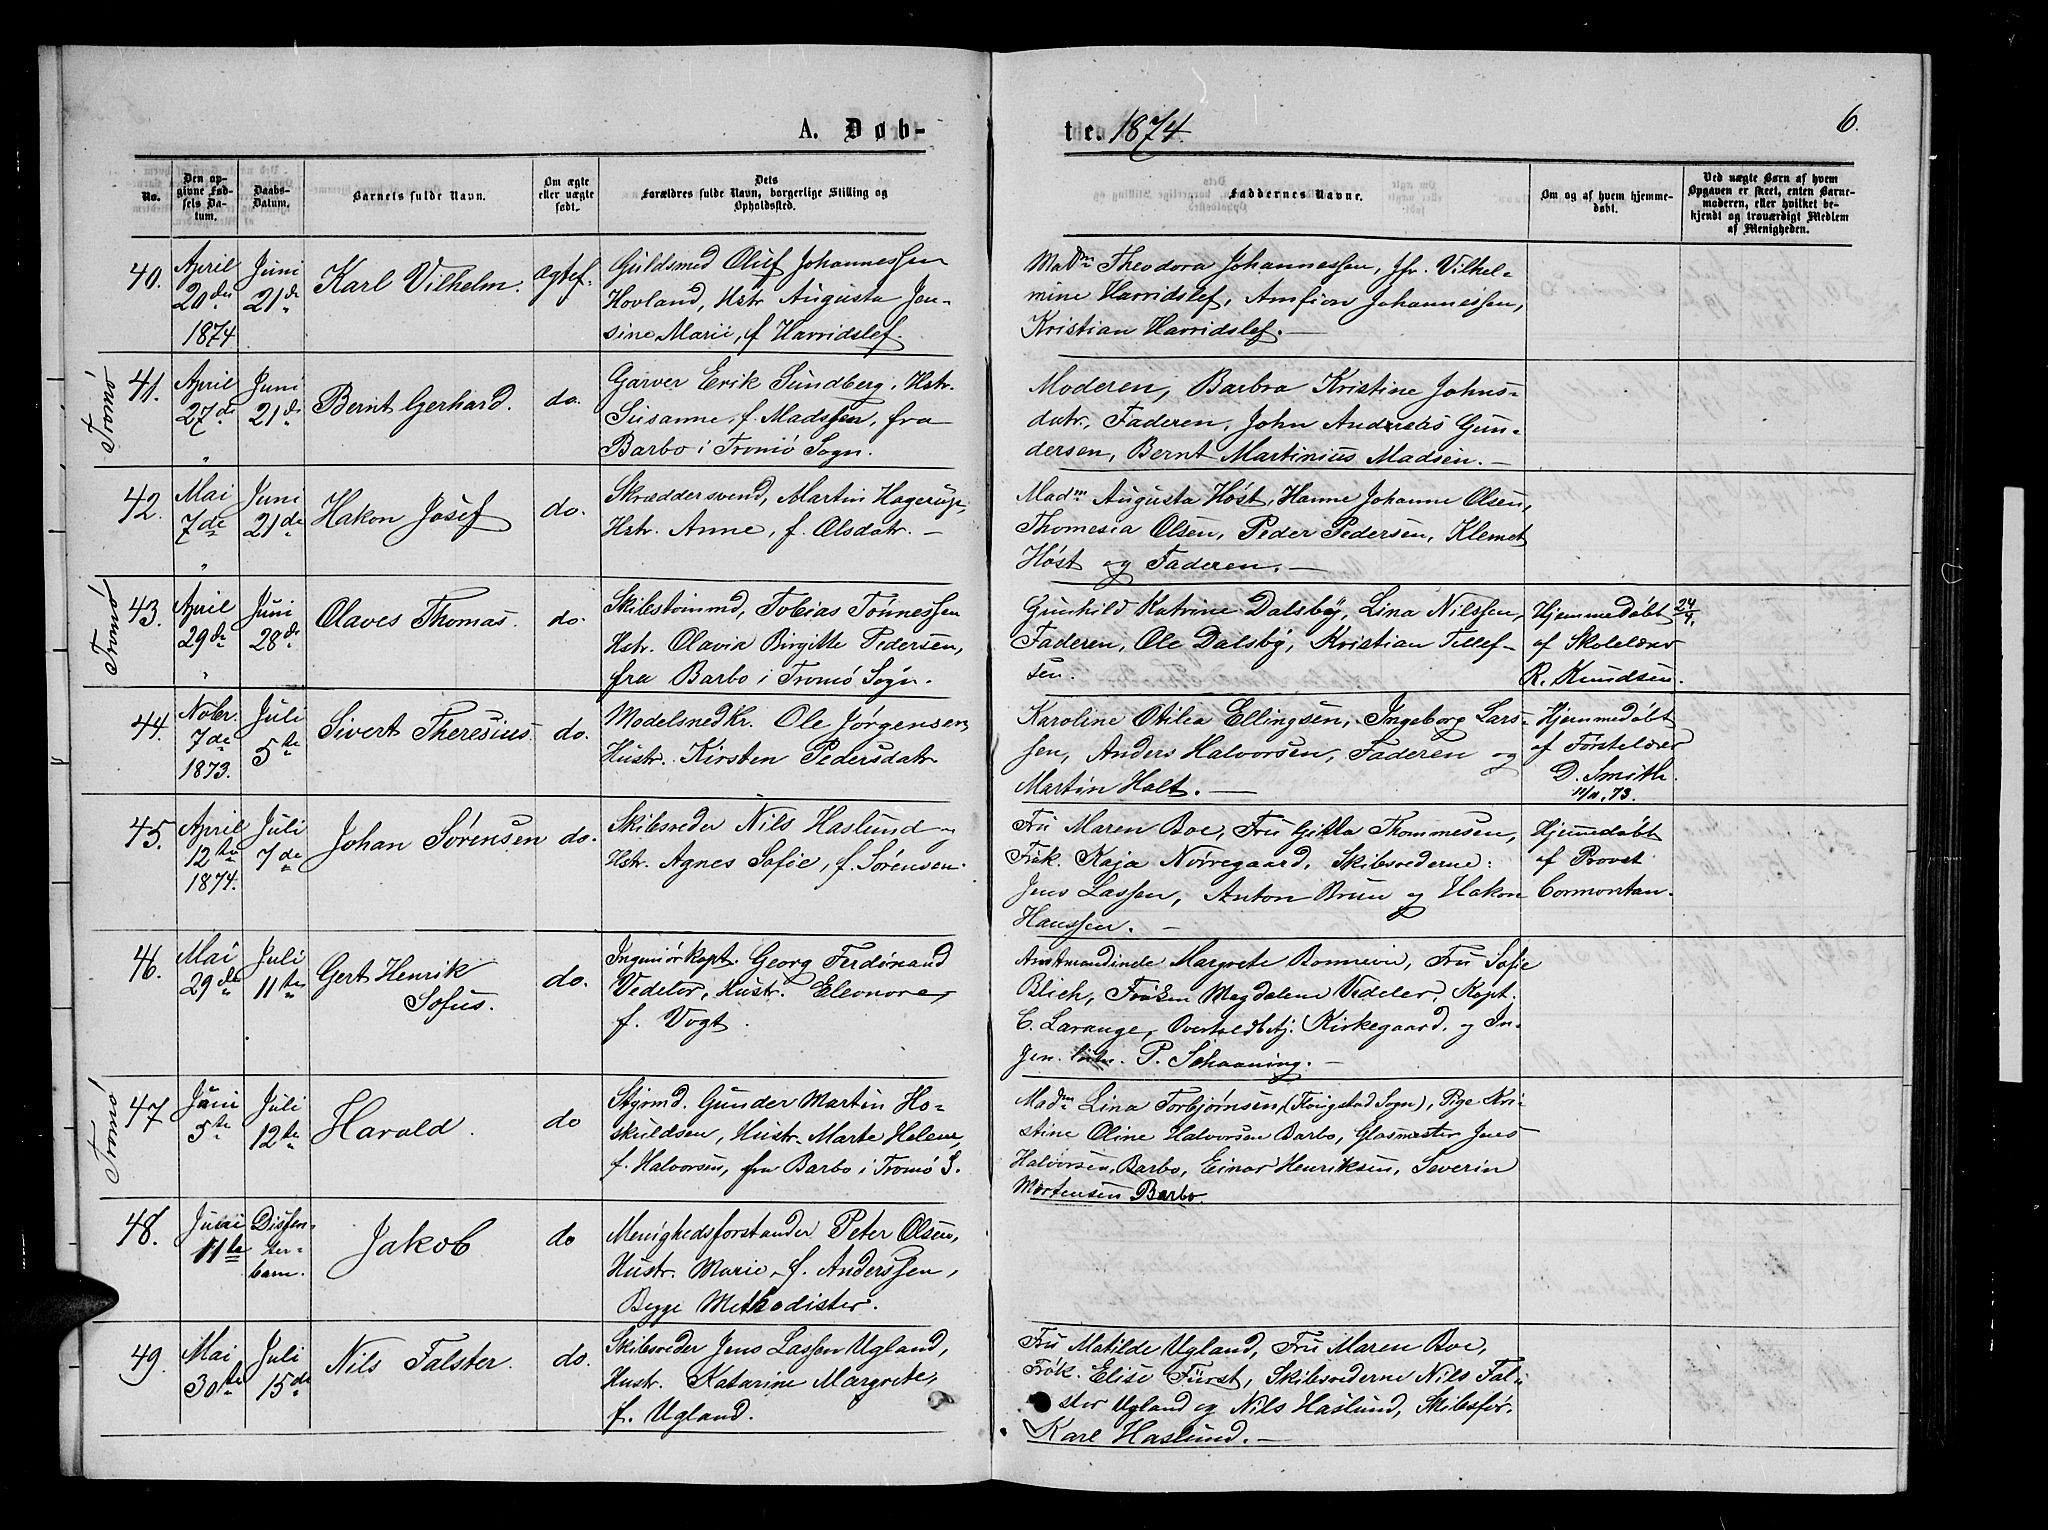 A. Døb-
te. 1874.
6.
No.
Den op-
givne Fød-
sels Da-
tum.
Daabs-
Datum.
Barnets fulde Navn.
Om ægte
eller uægte
født.
Dets
Forældres fulde Navn, borgerlige Stilling og
Opholdssted.
Faddernes Navne.
Om og af hvem hjemme-
døbt.
Ved uægte Børn af hvem
Opgaven er skeet, enten Barne-
moderen, eller hvilket be-
kjendt og troværdigt Medlem
af Menigheden.
40.
April
20de
1874
Juni
21de
Karl Vilhelm.
ægtef.
Guldsmed Oluf Johannessen
Hovland, Hstr. Augusta Jen-
sine Marie, f. Harridslef.
Madm Theodora Johannessen, Jfr. Vilhel-
mine Harridslef, Amfion Johannessen,
Kristian Harridslef. —
Tromö
41.
April
27de
"
Juni
21de
Bernt Gerhard.
do.
Garver Erik Sundberg, Hstr.
Susanne, f. Madssen, fra
Barbo i Tromö Sogn.
Moderen, Barbra Kristine Johns-
datr., Faderen, John Andreas Gun-
dersen, Bernt Martinius Madsen. —
42.
Mai
7de
"
Juni
21de
Hakon Josef
do.
Skræddersvend, Martin Hagerup,
Hstr. Anne, f. Olsdatr. —
Madm Augusta Höst, Hanne Johanne Olsen,
Thomesia Olsen, Peder Pedersen, Klemet
Höst og Faderen. —
Tromö
43.
April
29de
"
Juni
28de
Olaves Thomas.
do.
Skibstömmd, Tobias Tönnessen
Hstr. Olavia Birgitte Pedersen,
fra Barbo i Tromö Sogn.
Gunhild Katrine Dalsby, Lina Nilssen,
Faderen, Ole Dalsby, Kristian Tellef-
sen.
Hjemmedöbt 24/4.
af Skolelærer
R. Knudsen.
44.
Nobr.
7de
1873.
Juli
5te
Sivert Theresius
do.
Modelsnedkr. Ole Jörgensen,
Hustr. Kirsten Pedersdatr.
Karoline Otilea Ellingsen, Ingeborg Lars-
sen, Anders Halvorsen, Faderen og
Martin Holt. —
Hjemmedöbt
af Förstelærer
D. Smith.
11/11. 73.
45.
April
12te
1874.
Juli
7de
Johan Sörensen
do.
Skibsreder Nils Haslund og
Hstr. Agnes Sofie, f. Sörensen.
Fru Maren Boe, Fru Gitta Thommesen,
Frök. Kaja Nörregaard, Skibsrederne:
Jens Lassen, Anton Bruun og Hakon
Hanssen. —
Hjemmedöbt
af Provst
Cormontan.
46.
Mai
29de
Juli
11te
Gert Henrik
Sofus.
do.
Ingeniörkapt. Georg Ferdinand
Vedeler, Hustr. Eleonore,
f. Vogt.
Amtmandinde Margrete Bonnevie, Fru Sofie
Blich, Fröken Magdalene Vedeler, Kapt.
C. Larange, Kirkegaard, og In-
P. Schaaning. —
Tromö
47.
Juni
5te
Juli
12te
Harald.
do
Styrmd. Gunder Martin Ho-
skuldsen, Hustr. Marte Helene,
f. Halvorsen, fra Barbo i Tromö S.
Madm Lina Torbjörnsen, Pige Kri-
stine Oline Halvorsen Barbo, Glasmester Jens
Halvorsen, Barbo, Einar Henriksen, Severin
Mortensen Barbo.
48.
Juni
11te
Dissen-
ter-
barn.
Jakob
do
Menighedsforstander Peter Olsen,
Hustr. Marie, f. Anderssen,
Begge Methodister.
49.
Mai
30te
Juli
15de
Nils Falster.
do.
Skibsreder Jens Lassen Ugland,
Hustr. Katarine Margrete,
f. Ugland.
Fru Matilde Ugland, Fru Maren Boe,
Frök. Elise Fürst, Skibsrederne Nils Fal-
ster Ugland og Nils Haslund, Skibsför.
Karl Haslund. —